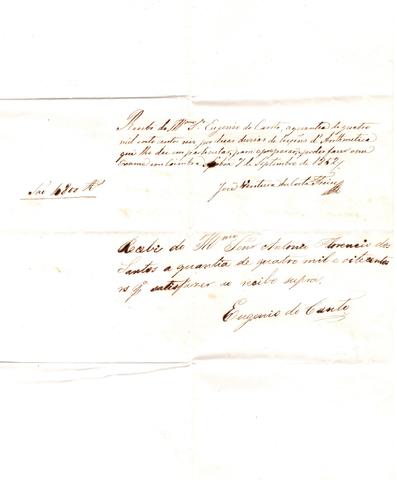 Recebi do Illmo Sr. Eugenio do Canto, a quantia de quatro
mil oito centos reis por duas duzias de lições d'Arithmetica
que lhe dei em particular, para
exame em Coimbra. 7 de Septembro de 1852
São 4800 Rs
José Ventura da Costa
Recebi do Illmo Senr Antonio Florencio dos
Santos a quantia de quatro mil e oitocentos
rs pa satisfazer ao recibo supra.
Eugenio do Canto